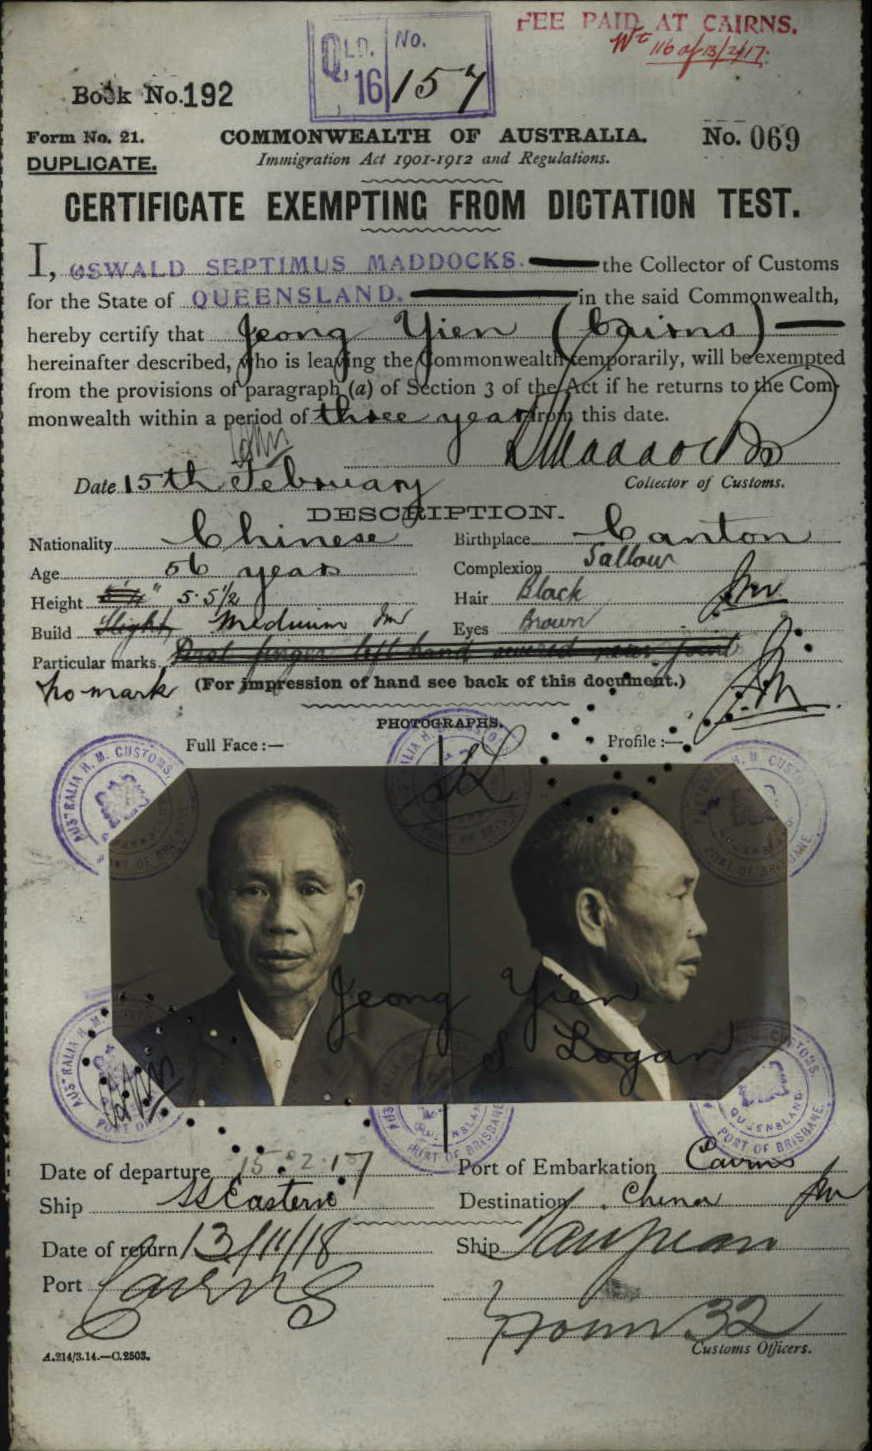 FEE PAID AT CAIRNS.
116 of 13/2/17.
QLD. No.
16 157
Book No. 192
Form No. 21. COMMONWEALTH OF AUSTRALIA. No. 069
DUPLICATE. Immigration Act 1901-1912 and Regulations.
CERTIFICATE EXEMPTING FROM DICTATION TEST.
I, OSWALD SEPTIMUS MADDOCKS. the Collector of Customs
for the State of QUEENSLAND. in the said Commonwealth,
hereby certify that Jeong Yien (Cairns)
hereinafter described, who is leaving the Commonwealth temporarily, will be exempted
from the provisions of paragraph (a) of Section 3 of the Act if he returns to the Com-
monwealth within a period of three years from this date.
Maddocks
Date 15th February Collector of Customs.
DESCRIPTION.
Nationality Chinese Birthplace Canton
Age 56 years Complexion Sallow
Height 5·5½ Hair Black
Build Slight Medium Eyes Brown
Particular marks First finger left hand severed near joint
no mark (For impression of hand see back of this document.)
PHOTOGRAPHS.
Full Face:— Profile:—
AUSTRALIA H. M. CUSTOMS.
QUEENSLAND
PORT OF BRISBANE.
Jeong Yien
S Logan
Date of departure 15.2.17 Port of Embarkation Cairns
Ship SS Eastern Destination China
Date of return 13/11/18 Ship Taiyuan
Port Cairns
Form 32
Customs Officers.
A.214/3.14.—C.2503.